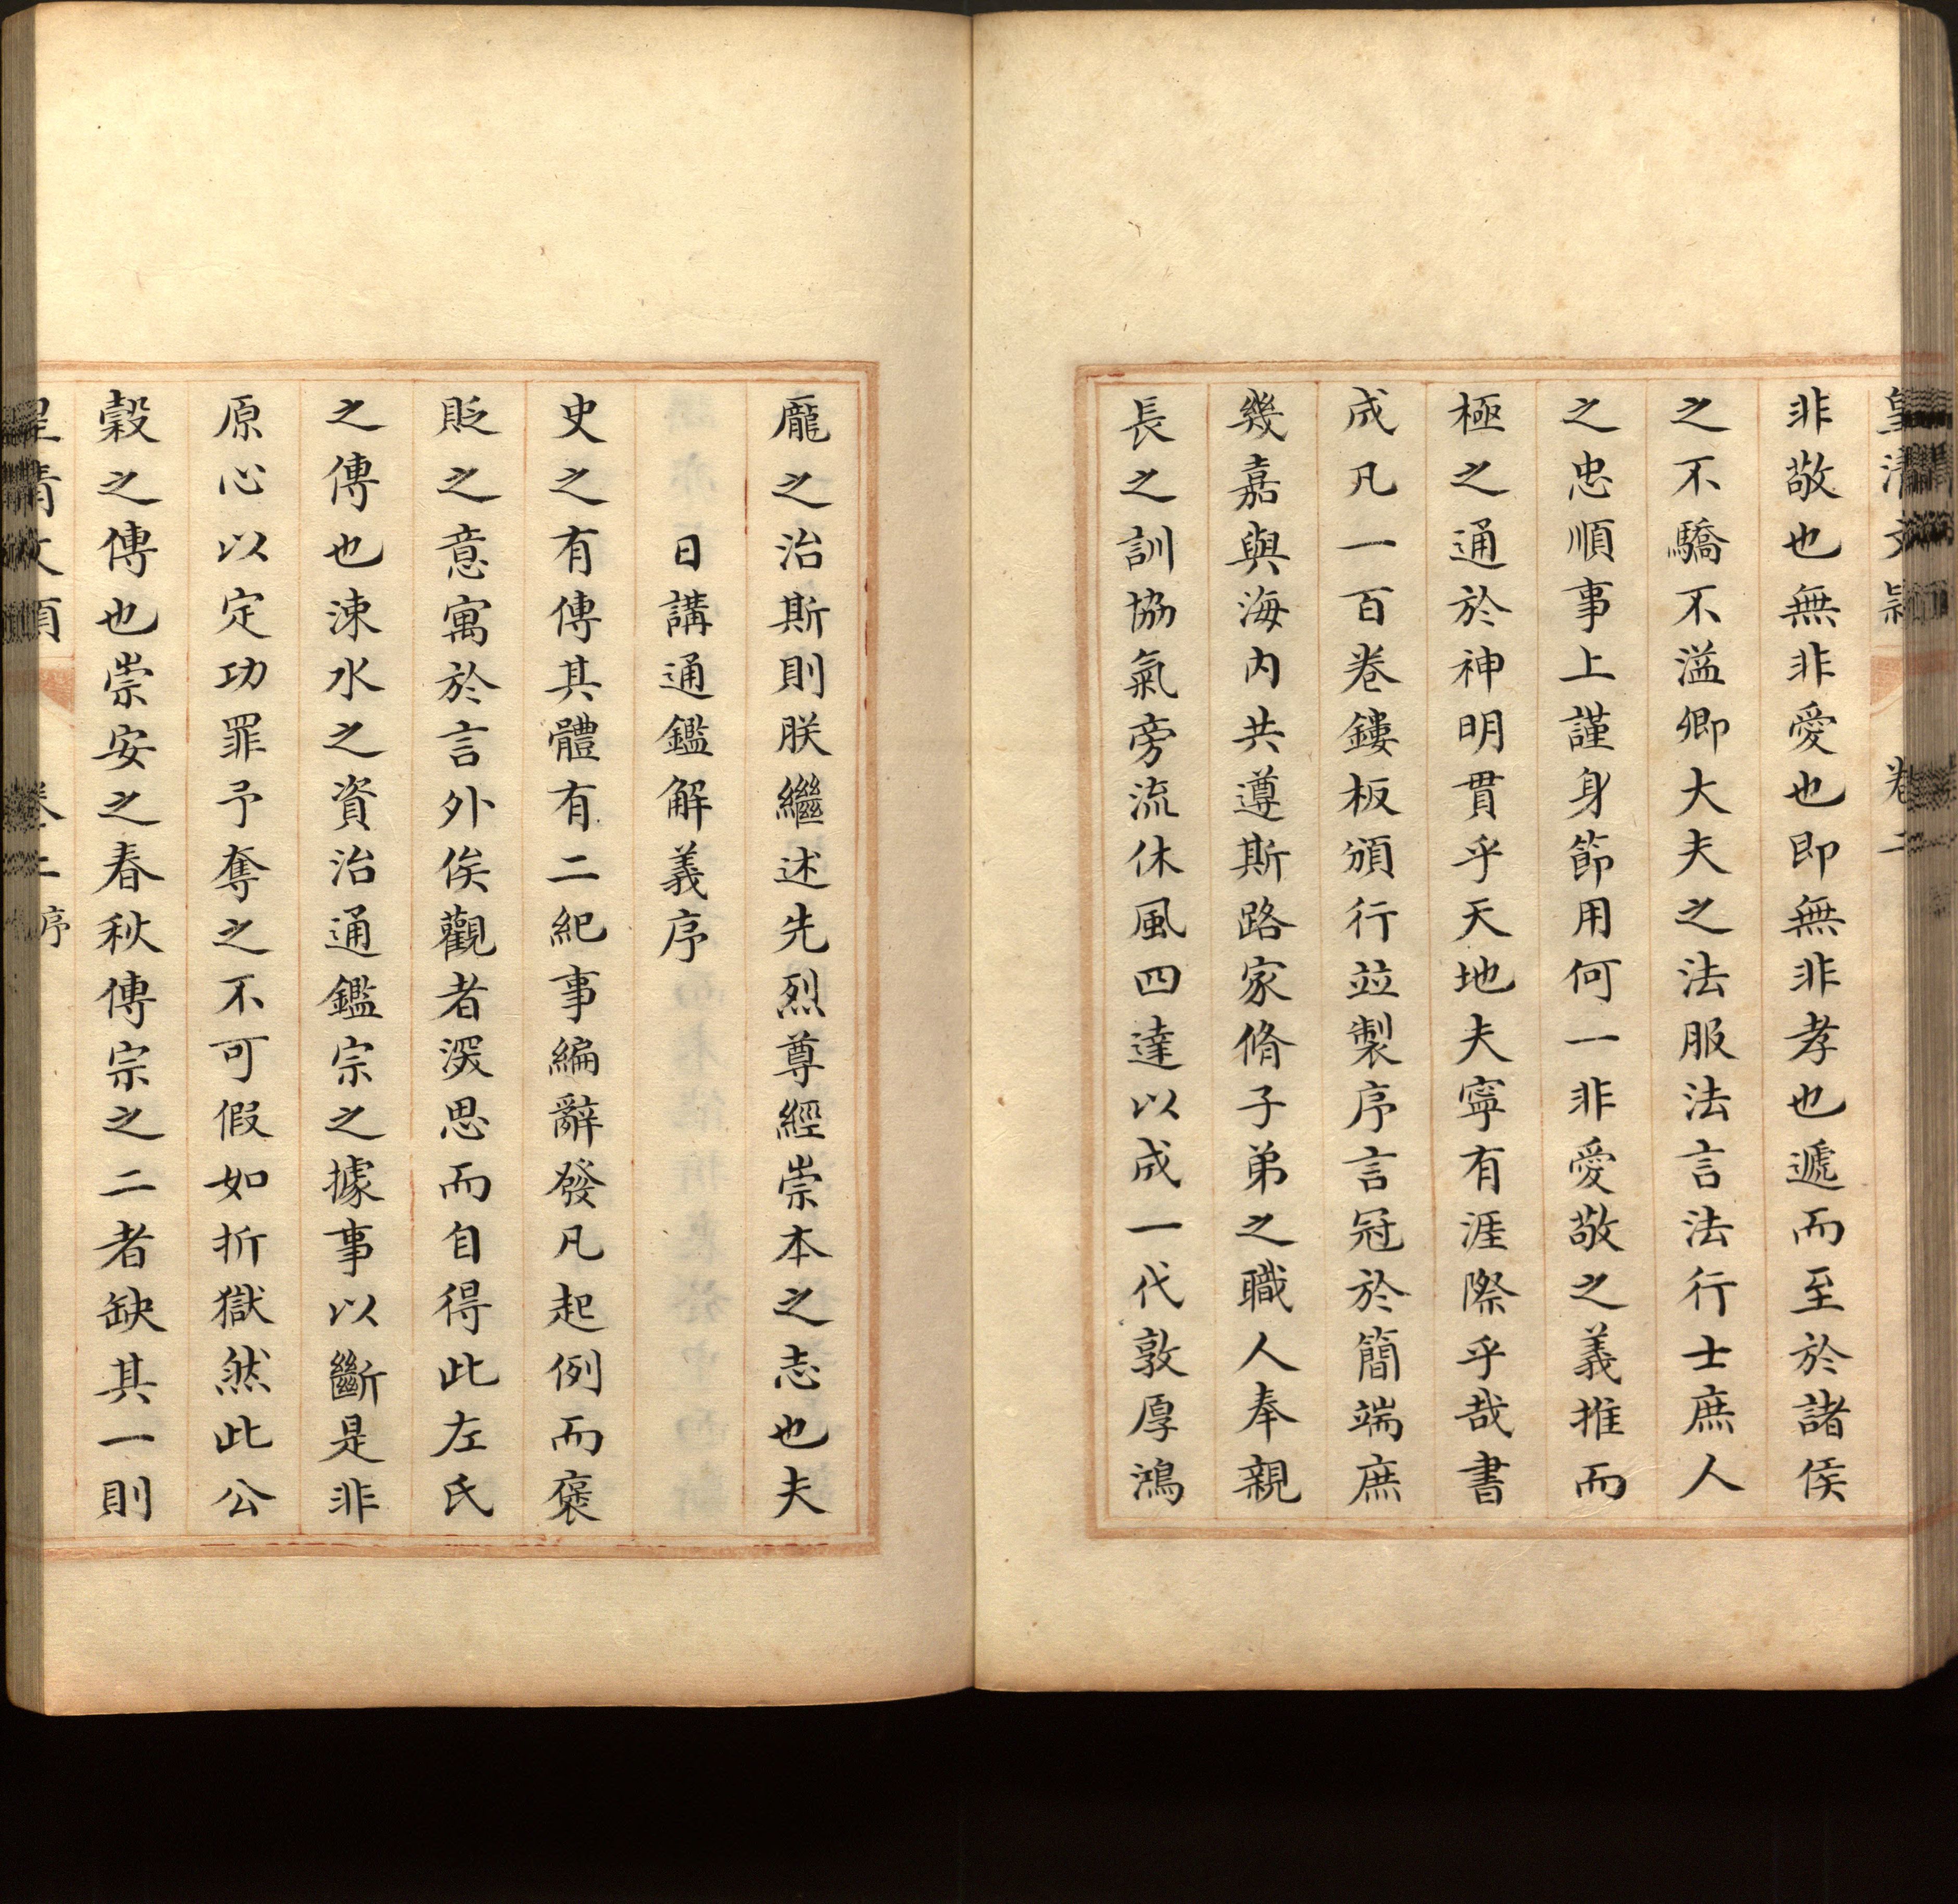 皇清文穎 卷二
非敬也無非愛也即無非孝也遞而至於諸侯
之不驕不溢卿大夫之法服法言法行士庶人
之忠順事上謹身節用何一非愛敬之義推而
極之通於神明貫乎天地夫寧有涯際乎哉書
成凡一百卷鏤板頒行並製序言冠於簡端庶
幾嘉與海內共遵斯路家脩子弟之職人奉親
長之訓協氣旁流休風四達以成一代敦厚鴻
龐之治斯則朕繼述先烈尊經崇本之志也夫
日講通鑑解義序
史之有傳其體有二紀事編辭發凡起例而褒
貶之意寓於言外俟觀者深思而自得此左氏
之傳也涑水之資治通鑑宗之據事以斷是非
原心以定功罪予奪之不可假如折獄然此公
穀之傳也崇安之春秋傳宗之二者缺其一則
皇清文穎 卷二 序